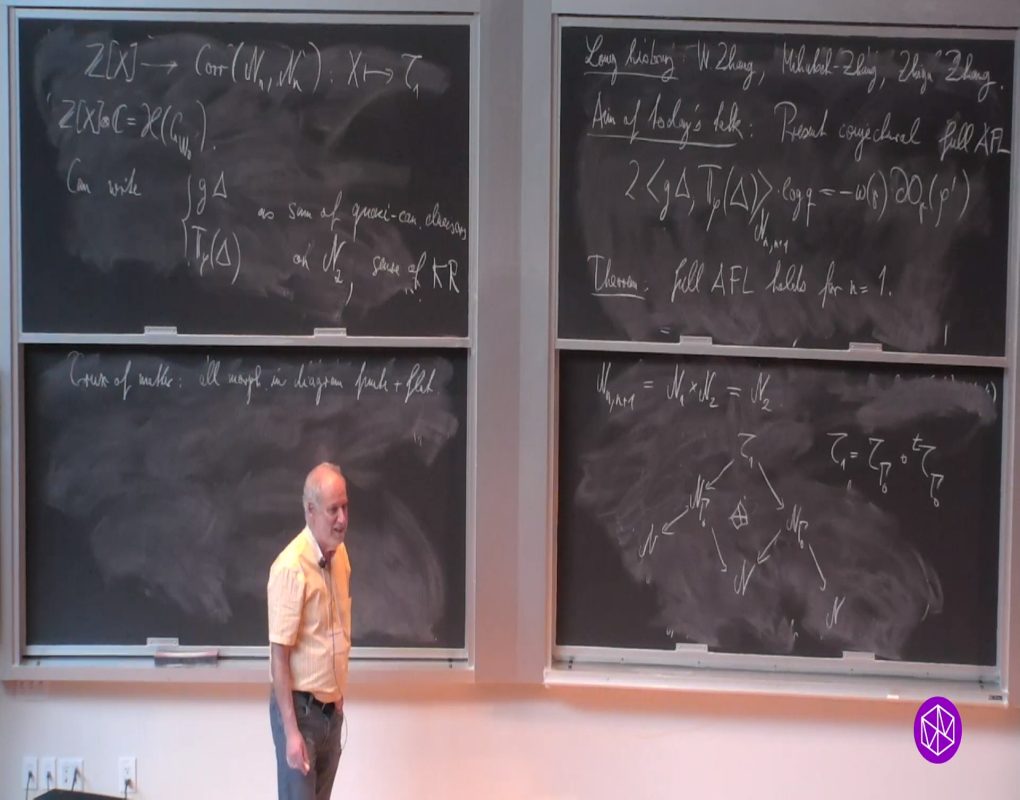 Z[X] → Corr(N_n, N_n) : X ↦ τ_1
Z[X]⊗C = H(G_{W_0}).
Can write { gΔ
T_φ(Δ)
as sum of quasi-can. divisors
on N_2, sense of KR
Crux of matter: all morph. in diagram finite + flat.
Long history: W. Zhang, Mihatsch-Zhang, Zhiyu Zhang.
Aim of today's talk: Present conjectural full AFL
2⟨gΔ, T_φ(Δ)⟩_{N_{n,n+1}} · log q = -ω(γ) ∂O_γ(φ')
Theorem: full AFL holds for n = 1.
N_{n,n+1} = N_1 × N_2 = N_2
τ_1
τ_1 = τ_{Γ_0} ∘ ^tτ_{Γ_0}
N_{Γ_0} N_{Γ_0}
N N N